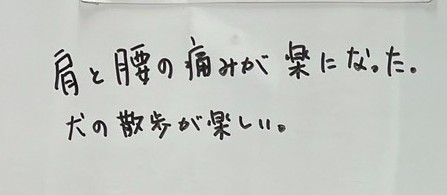 肩と腰の痛みが楽になった。
犬の散歩が楽しい。